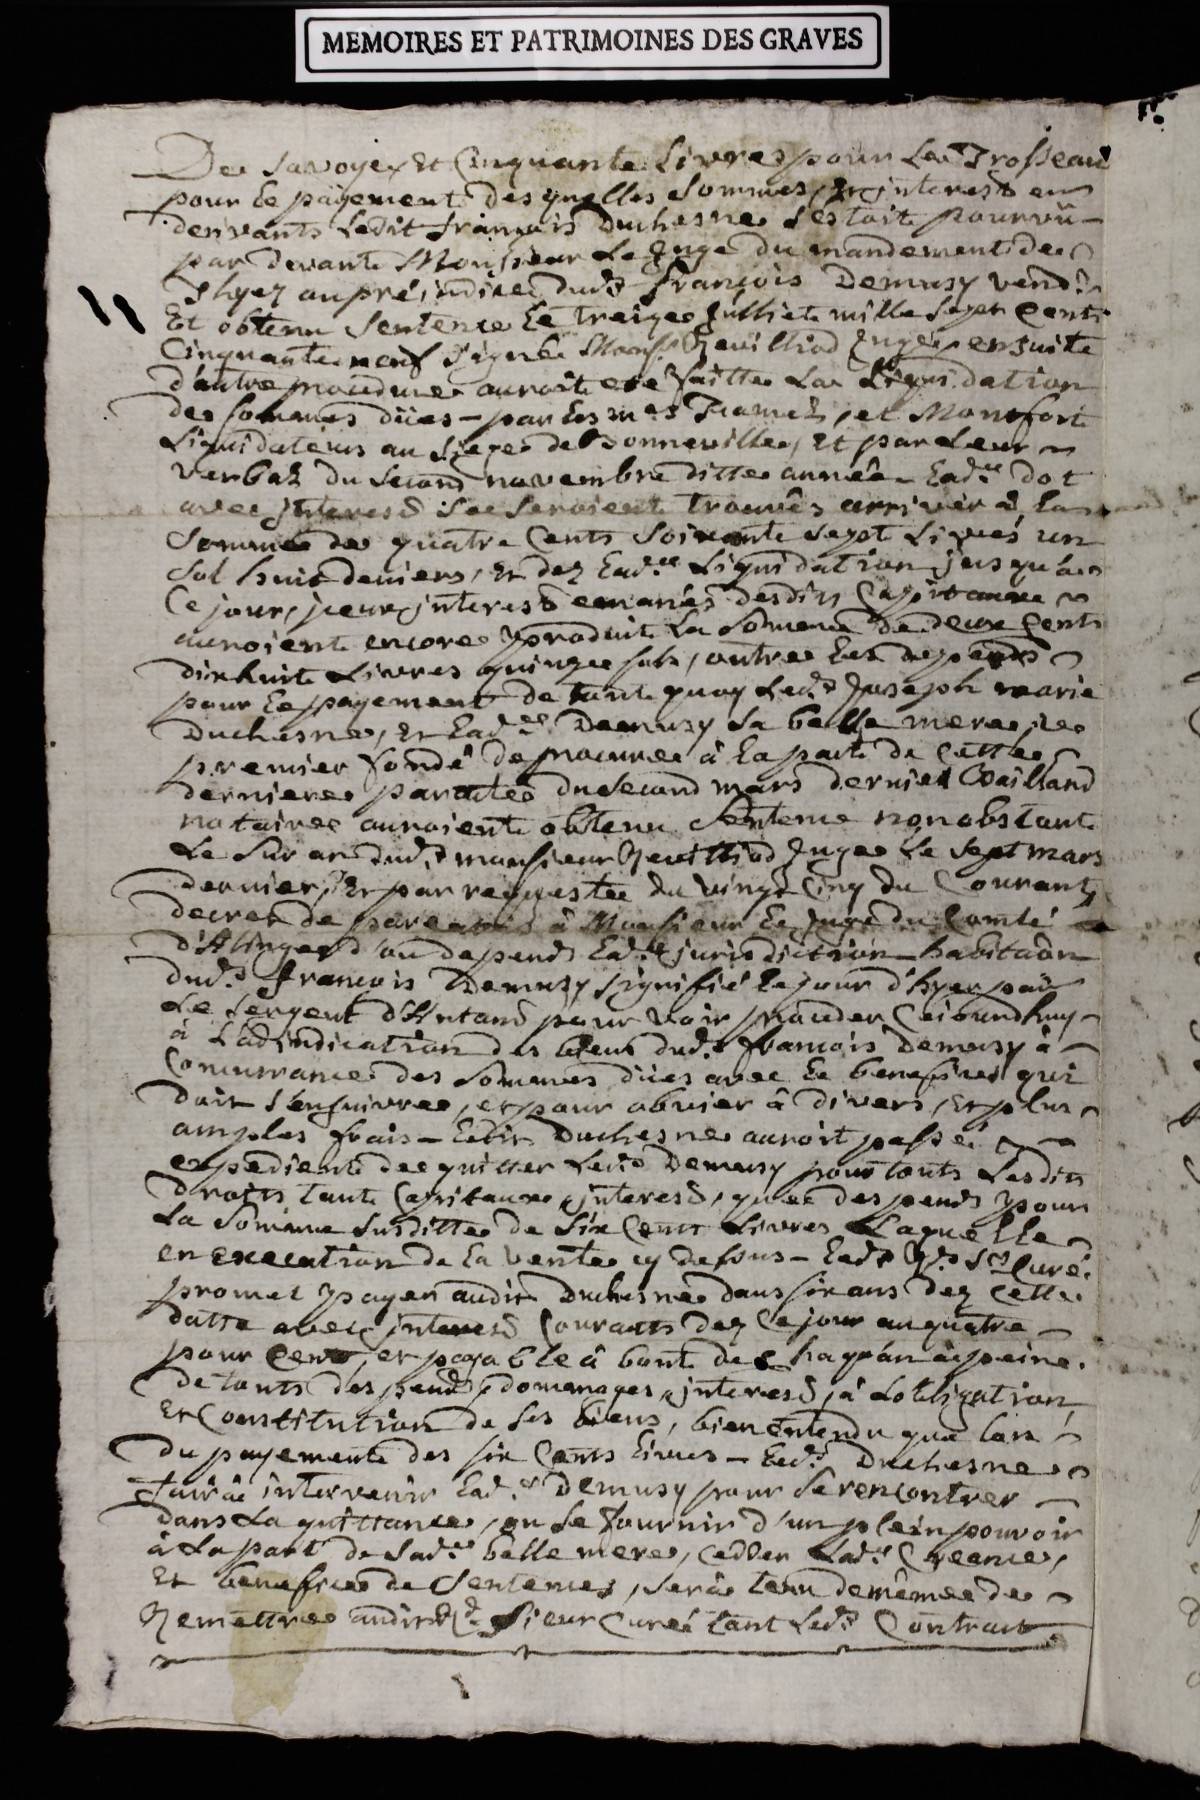 MEMOIRES ET PATRIMOINES DES GRAVES
De Savoye, et Cinquante Livres pour Le Trosseau
pour le payement desquelles sommes, et interests en
derivants Ledit françois Duchesne s'estoit pourvû
par devant Monsieur Le Juge du mandement de
au préjudice dud.t françois Demusy vend.r
Et obtenu Sentence Le treize Julliet mille sept Cents
Cinquante neuf signé Mons.r Reuilliod Juge, ensuite
d'autre procedure auroit eté faitte La Liquidation
des sommes dües par les m.es et Monfort
Liquidateurs au siege de Bonneville, Et par Leur
verbal du second novembre ditte année Lad.te dot
avec interests se seroient trouvés arriver à la
Somme de quatre Cents soixante sept Livres un
sol huit deniers, et dez Lad.te Liquidation jusqu'à
Ce jour, interests emanés desdits Capitaux
auroient encore produit La somme de deux Cents
dixhuit Livres quinze sols, outre les depends
pour le payement de tout quoy Led.t Joseph marie
Duchesne, et Lad.te Demusy sa belle mere, le
premier fondé de procure à la part de Cette
derniere par acte du second mars dernier
notaire auroient obtenu Sentence nonobstant
Le dud.t monsieur Reuilliod Juge Le sept mars
dernier, Et par requeste du vingt Cinq du Courant
decret de pareatis à Monsieur Le Juge du Comté
d'Alinges d'ou depend Lad.te jurisdiction habitaôn
dud.t françois Demusy signifié le jour d'hyer par
Le sergent pour voir proceder Cejourdhuy
à L'adjudication des biens dud.t francois Demusy à
Concurrance des sommes dües avec le benefice qui
doit s'ensuivre, et pour obvier à divers, et plus
amples frais Ledit Duchesne auroit passé
expedient de quitter Led.t Demusy pour touts Lesdits
Droits tant Capitaux, interests, que despends pour
La somme susditte de six Cents Livres Laquelle
en execution de la vente cy dessous Led.t R.d S.r Curé
promet payer audit Duchesne dans six ans dez Cette
datte avec interests Courants dez Ce jour au quatre
pour Cent, et payable à bout de chaque an à peine
de touts despends, domenages, interests, à L'obligation,
Et Constitution de ses biens, bien entendu que lors
du payement des six Cents Livres Led.t Duchesne
faira intervenir Lad.te Demusy pour se rencontrer
dans La quittance, ou se fournir d'un plein pouvoir
à La part de Sad.te belle mere, Ceder Lad.te Creance,
Et benefice de Sentences, sera tenu de même de
Remettre audit R.d Sieur Curé tant Led.t Contract